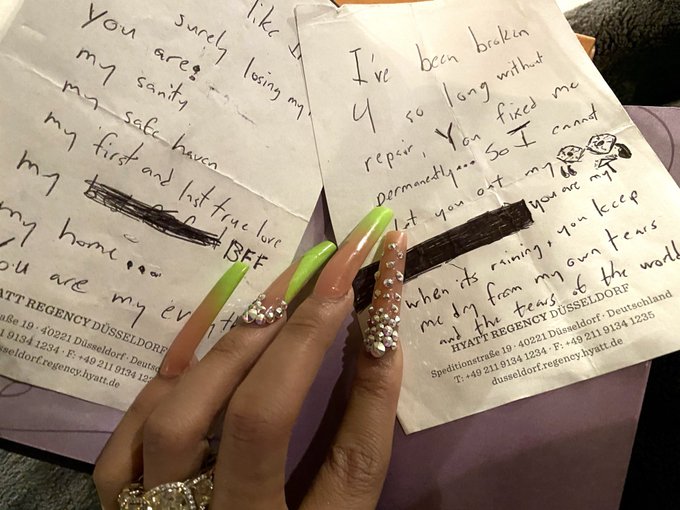 like I
You surely losing my
are.
my sanity
my safe haven
my first and last true love
my BFF
my home...
You are my
HYATT REGENCY DÜSSELDORF
19 · 40221 Düsseldorf · Deutsc
T: +49 211 9134 1234 · F: +49 211 9134 12
dusseldorf.regency.hyatt.de
I've been broken
4 so long without
repair, You fixed me
permanently... So I cannot
let you out my
you are my
when its raining, you keep
me dry from my own tears
and the tears of the world
HYATT REGENCY DÜSSELDORF
Speditionstraße 19 · 40221 Düsseldorf · Deutschland
T: +49 211 9134 1234 · F: +49 211 9134 1235
dusseldorf.regency.hyatt.de